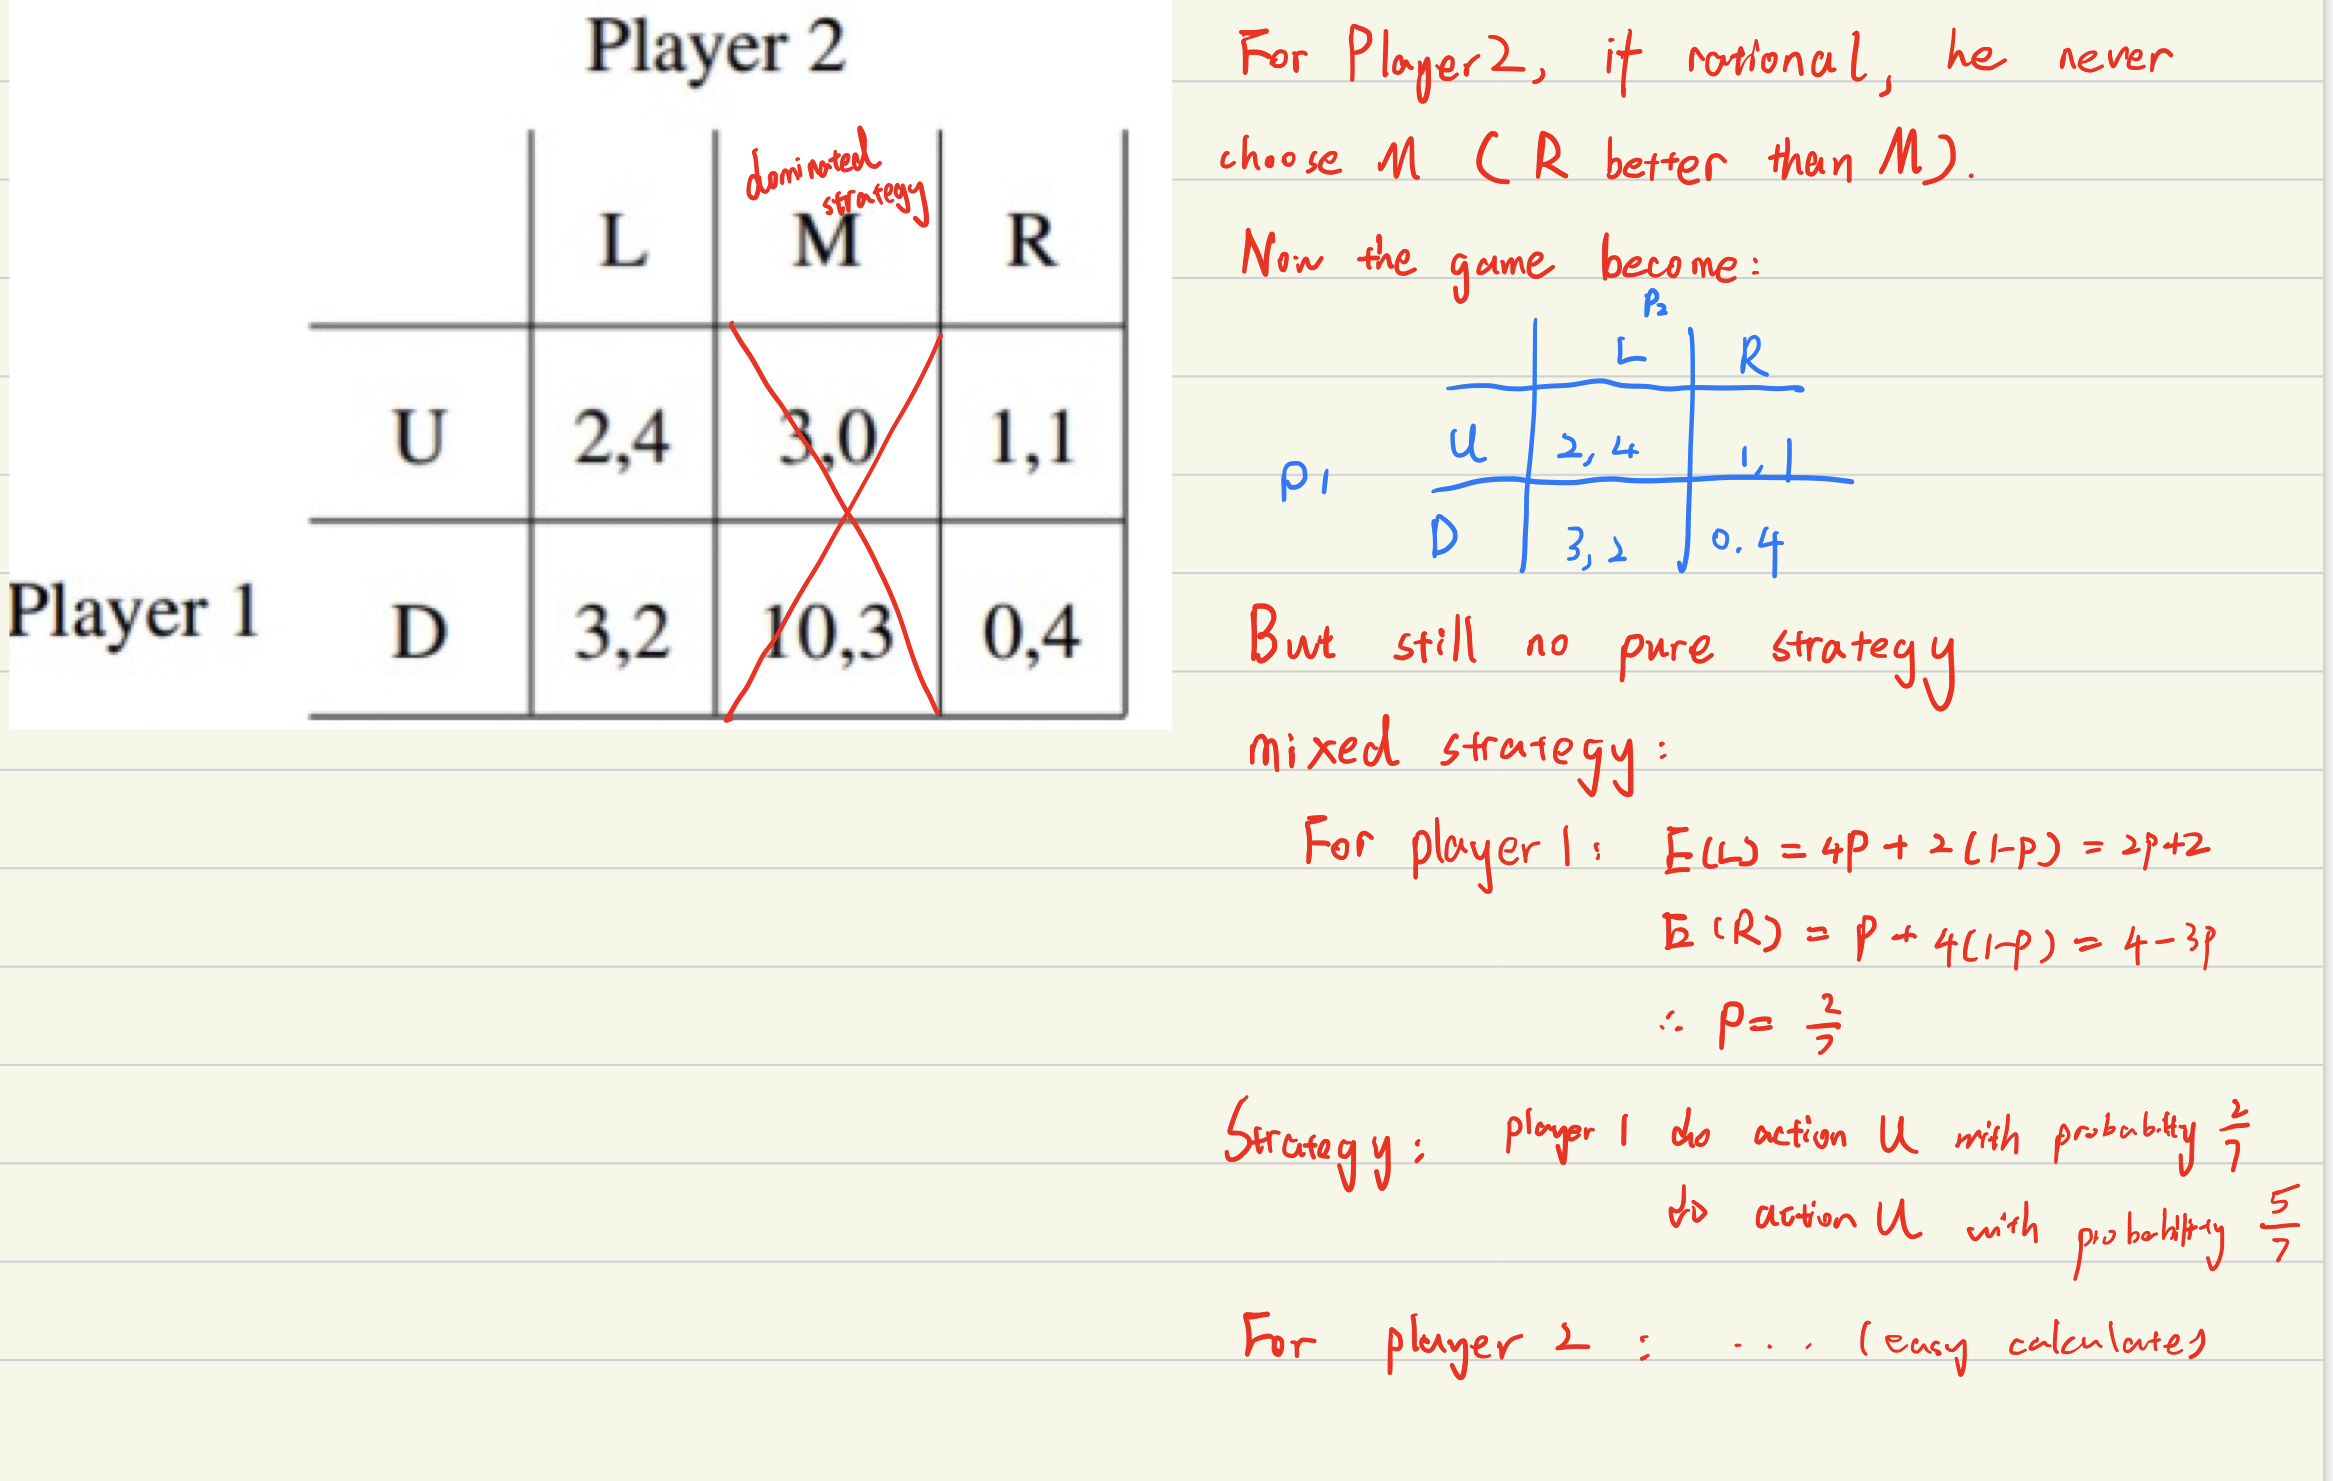 Player 2
dominated
strategy
L M R
U 2,4 3,0 1,1
D 3,2 10,3 0,4
Player 1
For Player 2, if rational, he never
choose M (R better than M).
Now the game become:
P2
L R
U 2,4 1,1
P1
D 3,2 0.4
But still no pure strategy
mixed strategy:
For player 1: E(L) = 4P + 2(1-P) = 2P+2
E(R) = P + 4(1-P) = 4-3P
∴ P = 2/7
Strategy: player 1 do action U with probability 2/7
do action U with probability 5/7
For player 2 : ... (easy calculate)